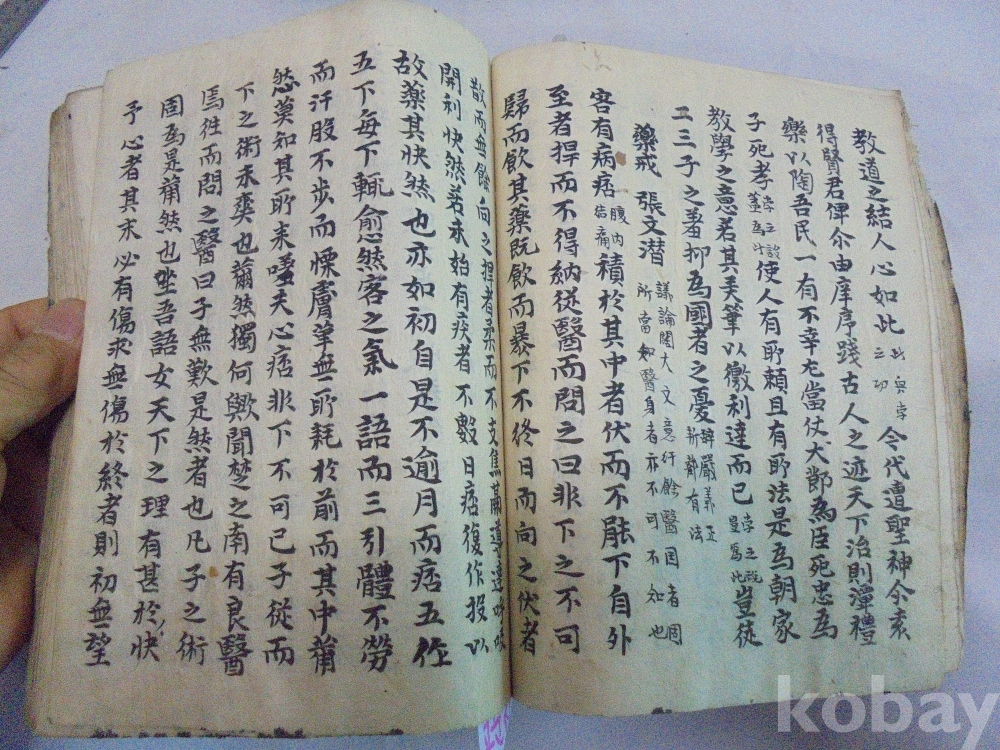 教道之結人心如此 此與学之功 今代遭聖神尒袁
得賢君俾尒由庠序踐古人之迹天下治則潭禮
樂以陶吾民一有不幸尤當仗大節為臣死忠為
子死孝 使人有所賴且有所法是為朝家
教學之意若其美筆以徼利達而已 豈徒
二三子之羞抑為國者之憂
藥戒 張文潛 議論閎大文意行餘醫国者固所當知醫身者亦不可不知也
客有病痞 腹内結痛 積於其中者伏而不能下自外
至者捍而不得納從醫而問之曰非下之不可
歸而飲其藥既飲而暴下不終日而向之伏者
散而無餘向之捍者柔而不支焦鬲道達
開利快然若未始有疾者不數日痞復作投以
故藥其快然也亦如初自是不逾月而痞五作
五下每下輒愈然客之氣一語而三引體不勞
而汗股不步而慄膚革無所耗於前而其中薾
然莫知其所来嘻夫心痞非下不可已予從而
下之術未爽也薾然獨何歟聞楚之南有良醫
焉徃而問之醫曰子無歎是然者也凡子之術
固為是薾然也坐吾語女天下之理有甚於快
予心者其末必有傷求無傷於終者則初無望
kobay